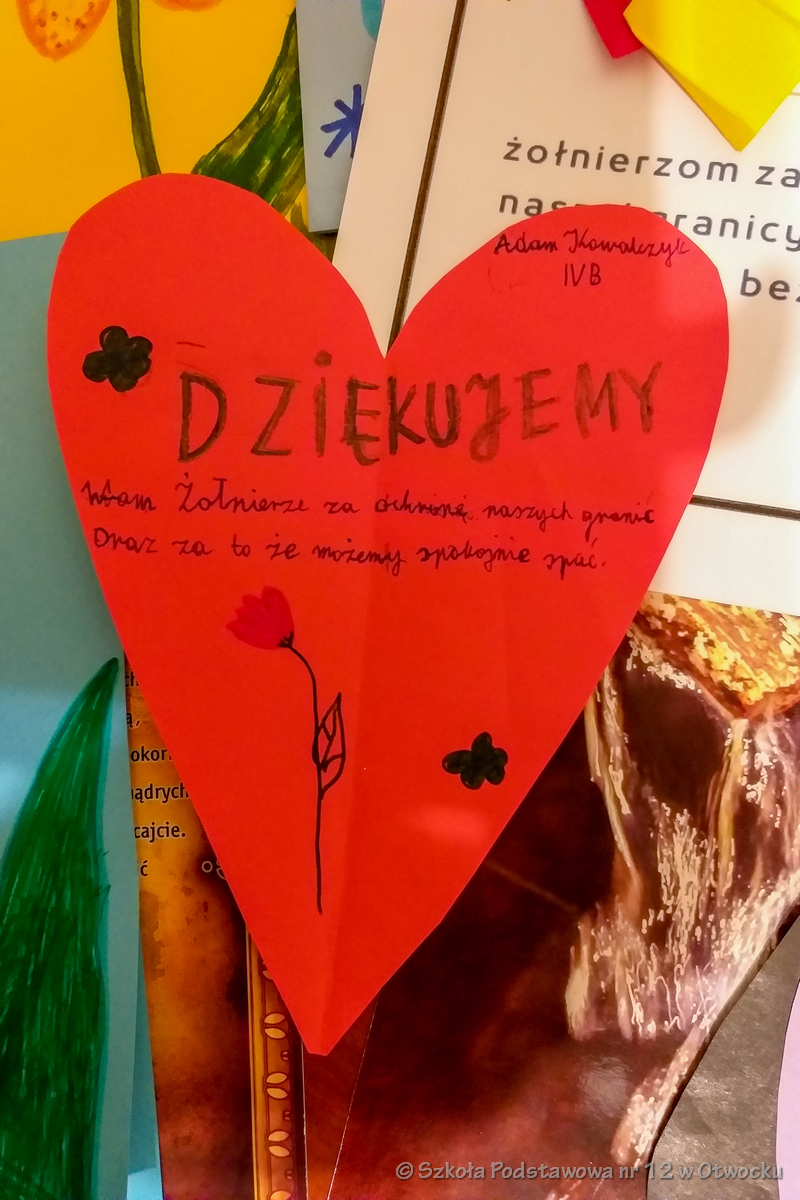 żołnierzom za
granicy
bez
Adam Kowalczyk
IVB
DZIĘKUJEMY
Wam Żołnierze za ochronę naszych granic
Oraz za to że możemy spokojnie spać.
ądrych
cajcie.
ć
© Szkoła Podstawowa nr 12 w Otwocku